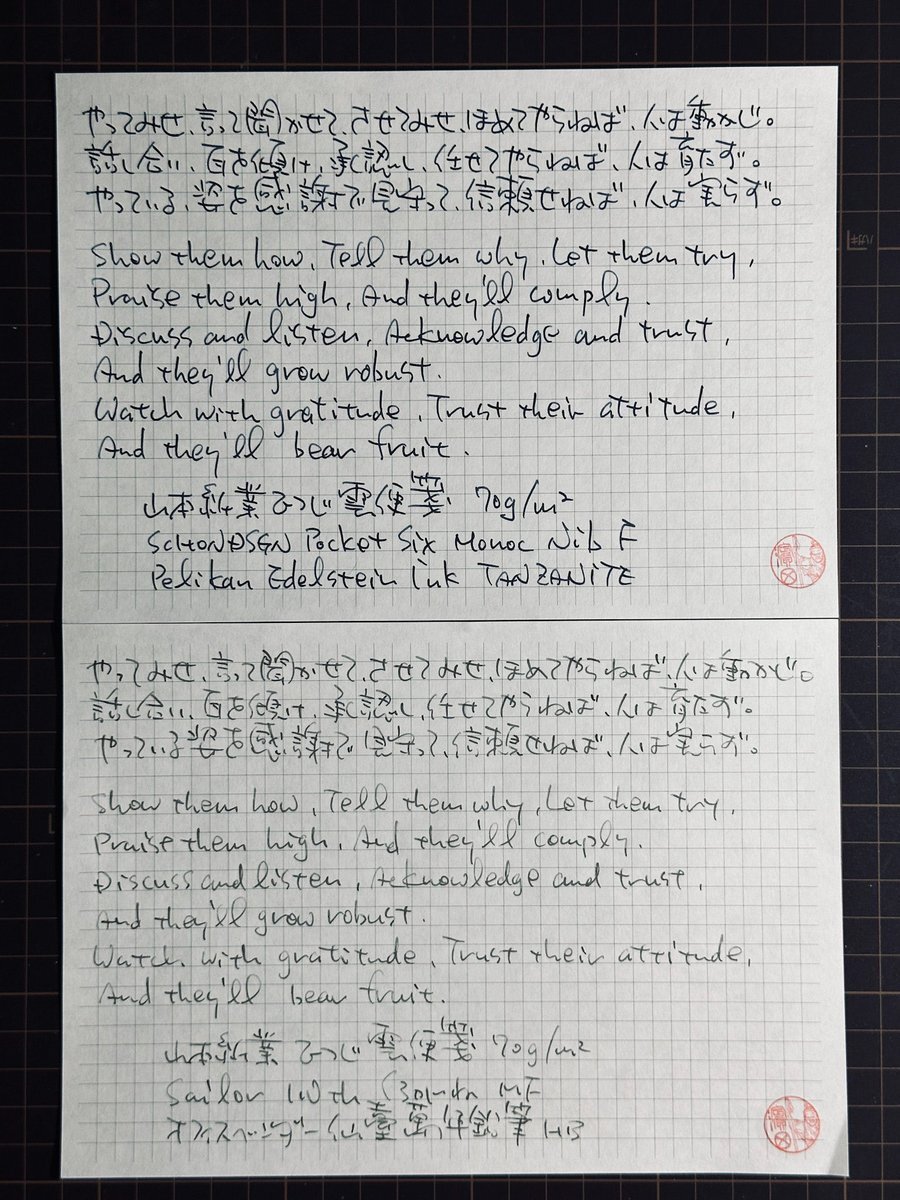 やってみせ、言って聞かせて、させてみせ、ほめてやらねば、人は動かじ。
話し合い、耳を傾け、承認し、任せてやらねば、人は育たず。
やっている、姿を感謝で見守って、信頼せねば、人は実らず。
Show them how, Tell them why, Let them try,
Praise them high, And they'll comply.
Discuss and listen, Acknowledge and trust,
And they'll grow robust.
Watch with gratitude, Trust their attitude,
And they'll bear fruit.
山本紙業 ひつじ雲便箋 70g/m²
SCHON DSGN Pocket Six Monoc Nib F
Pelikan Edelstein Ink TANZANITE
やってみせ、言って聞かせて、させてみせ、ほめてやらねば、人は動かじ。
話し合い、耳を傾け、承認し、任せてやらねば、人は育たず。
やっている姿を感謝で見守って、信頼せねば、人は実らず。
Show them how, Tell them why, Let them try,
Praise them high, And they'll comply.
Discuss and listen, Acknowledge and trust,
And they'll grow robust.
Watch with gratitude, Trust their attitude,
And they'll bear fruit.
山本紙業 ひつじ雲便箋 70g/m²
Sailor 110th MF
オフィスベンダー 仙臺萬年鉛筆 HB